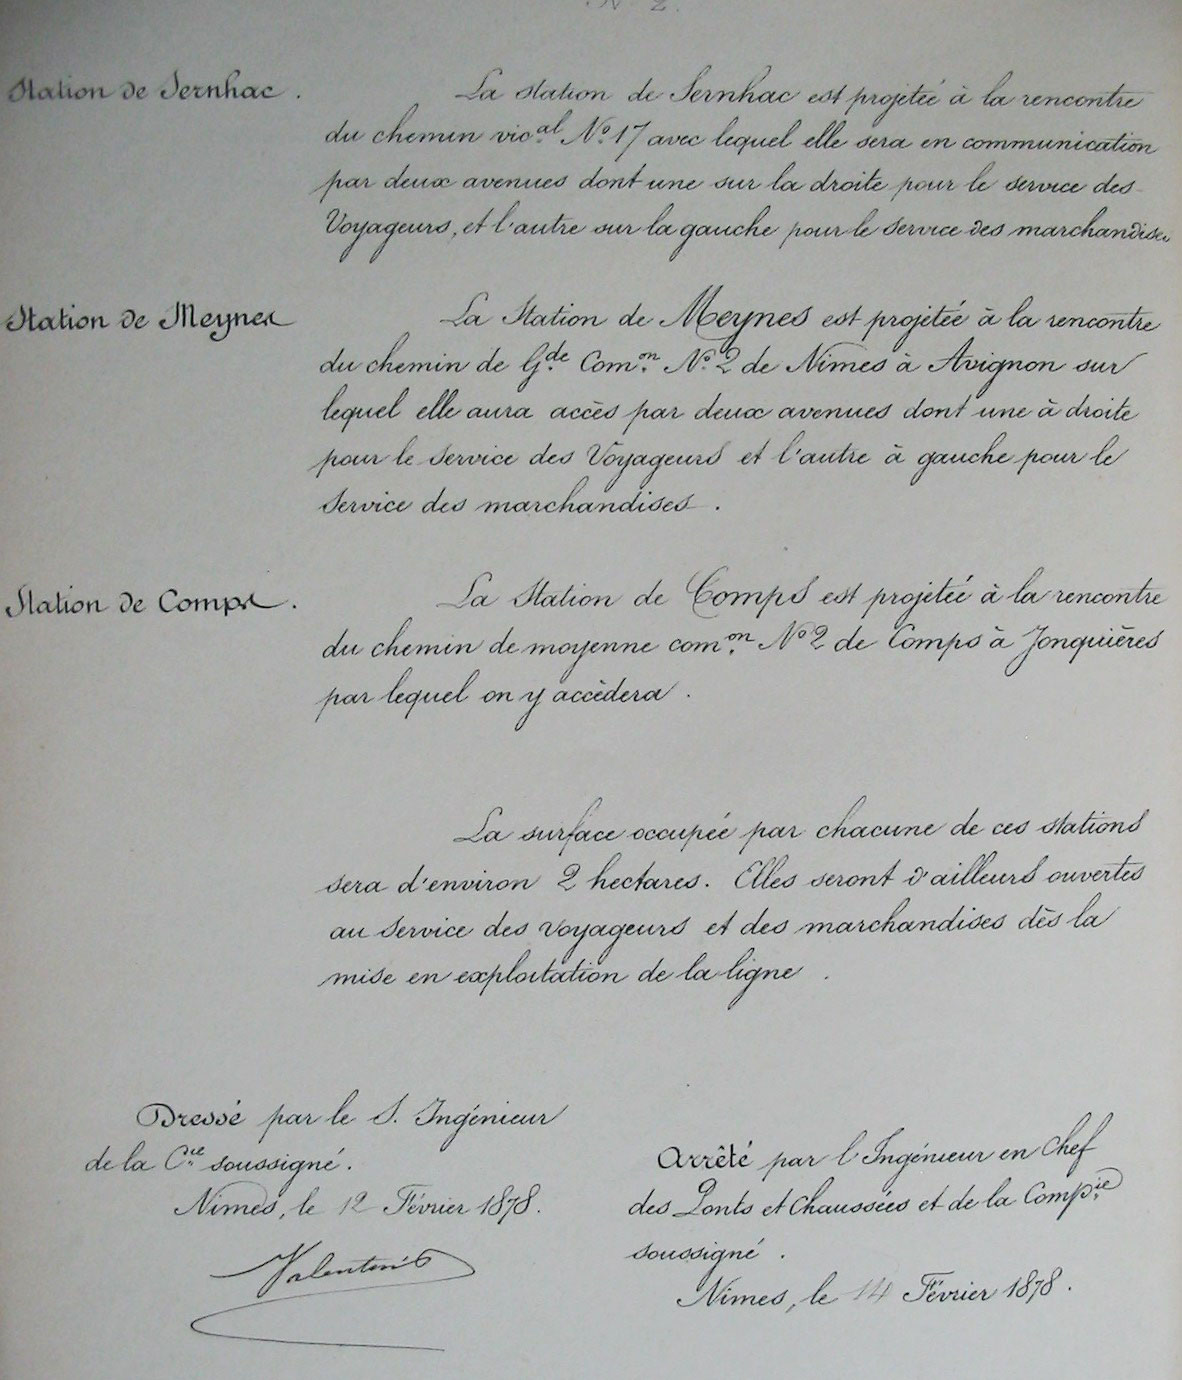 N° 2.
Station de Sernhac.
La station de Sernhac est projetée à la rencontre
du chemin vic.al N.o 17 avec lequel elle sera en communication
par deux avenues dont une sur la droite pour le service des
Voyageurs, et l'autre sur la gauche pour le service des marchandises
Station de Meynes
La Station de Meynes est projetée à la rencontre
du chemin de G.de Com.on N.o 2 de Nimes à Avignon sur
lequel elle aura accès par deux avenues dont une à droite
pour le service des Voyageurs et l'autre à gauche pour le
service des marchandises.
Station de Comps.
La Station de Comps est projetée à la rencontre
du chemin de moyenne com.on No 2 de Comps à Jonquières
par lequel on y accèdera.
La surface occupée par chacune de ces stations
sera d'environ 2 hectares. Elles seront d'ailleurs ouvertes
au service des voyageurs et des marchandises dès la
mise en exploitation de la ligne.
Dressé par le S. Ingénieur
de la C.ie soussigné.
Nimes, le 12 Février 1878.
Valentinis
Arrêté par l'Ingénieur en Chef
des Ponts et Chaussées et de la Comp.ie
soussigné.
Nimes, le 14 Février 1878.